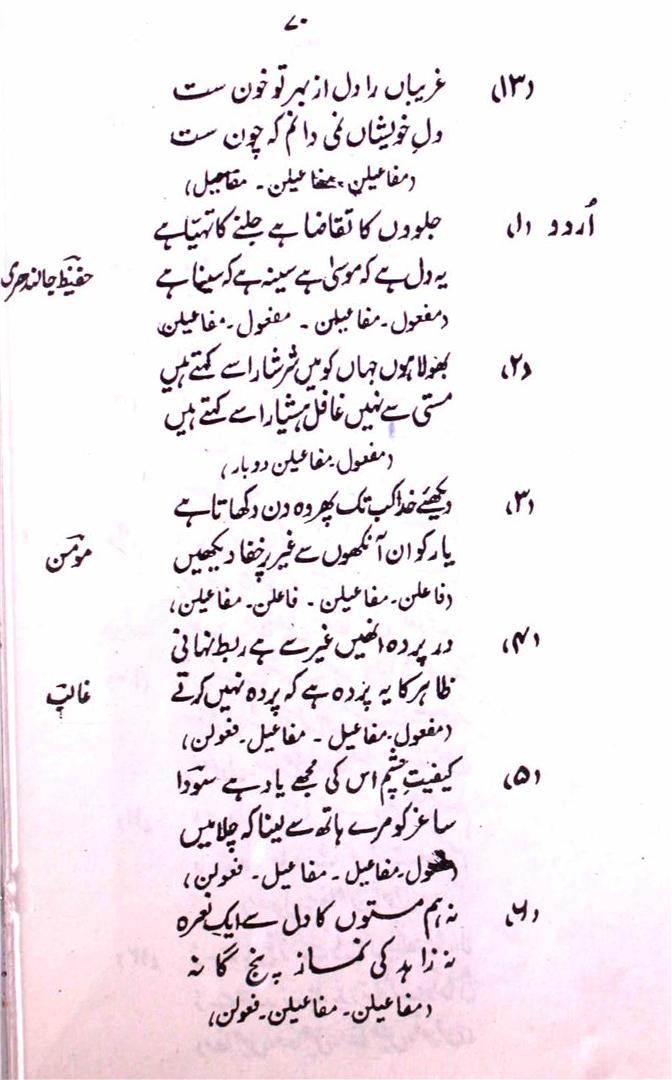 ۷۰
(۱۳) غریباں را دل از بہر تو خون ست
دل خویشاں نمی دانم کہ چون ست
(مفاعیلن۔ مفاعیلن۔ مفاعیل)
اُردو (۱) جلووں کا تقاضا ہے جلنے کا تہیّا ہے
یہ دل ہے کہ موسیٰ ہے سینہ ہے کہ سینا ہے حفیظ جالندھری
(مفعول۔ مفاعیلن ۔ مفعول۔ مفاعیلن)
(۲) بھولا ہوں جہاں کو میں سرشار اسے کہتے ہیں
مستی سے نہیں غافل ہشیار اسے کہتے ہیں
(مفعول۔ مفاعیلن دوبار)
(۳) دیکھئے خدا کب تک پھر وہ دن دکھاتا ہے
یار کو ان آنکھوں سے غیر پر خفا دیکھیں مومن
(فاعلن۔ مفاعیلن ۔ فاعلن۔ مفاعیلن)
(۴) در پردہ انھیں غیر سے ہے ربط نہانی
ظاہر کا یہ پردہ ہے کہ پردہ نہیں کرتے غالب
(مفعول۔ مفاعیل ۔ مفاعیل۔ فعولن)
(۵) کیفیتِ چشم اس کی مجھے یاد ہے سودا
ساغر کو مرے ہاتھ سے لینا کہ چلا میں
(مفعول۔ مفاعیل ۔ مفاعیل۔ فعولن)
(۶) نہ ہم مستوں کا دل سے ایک نعرہ
نہ زاہد کی نماز پنج گانہ
(مفاعیلن۔ مفاعیلن۔ فعولن)